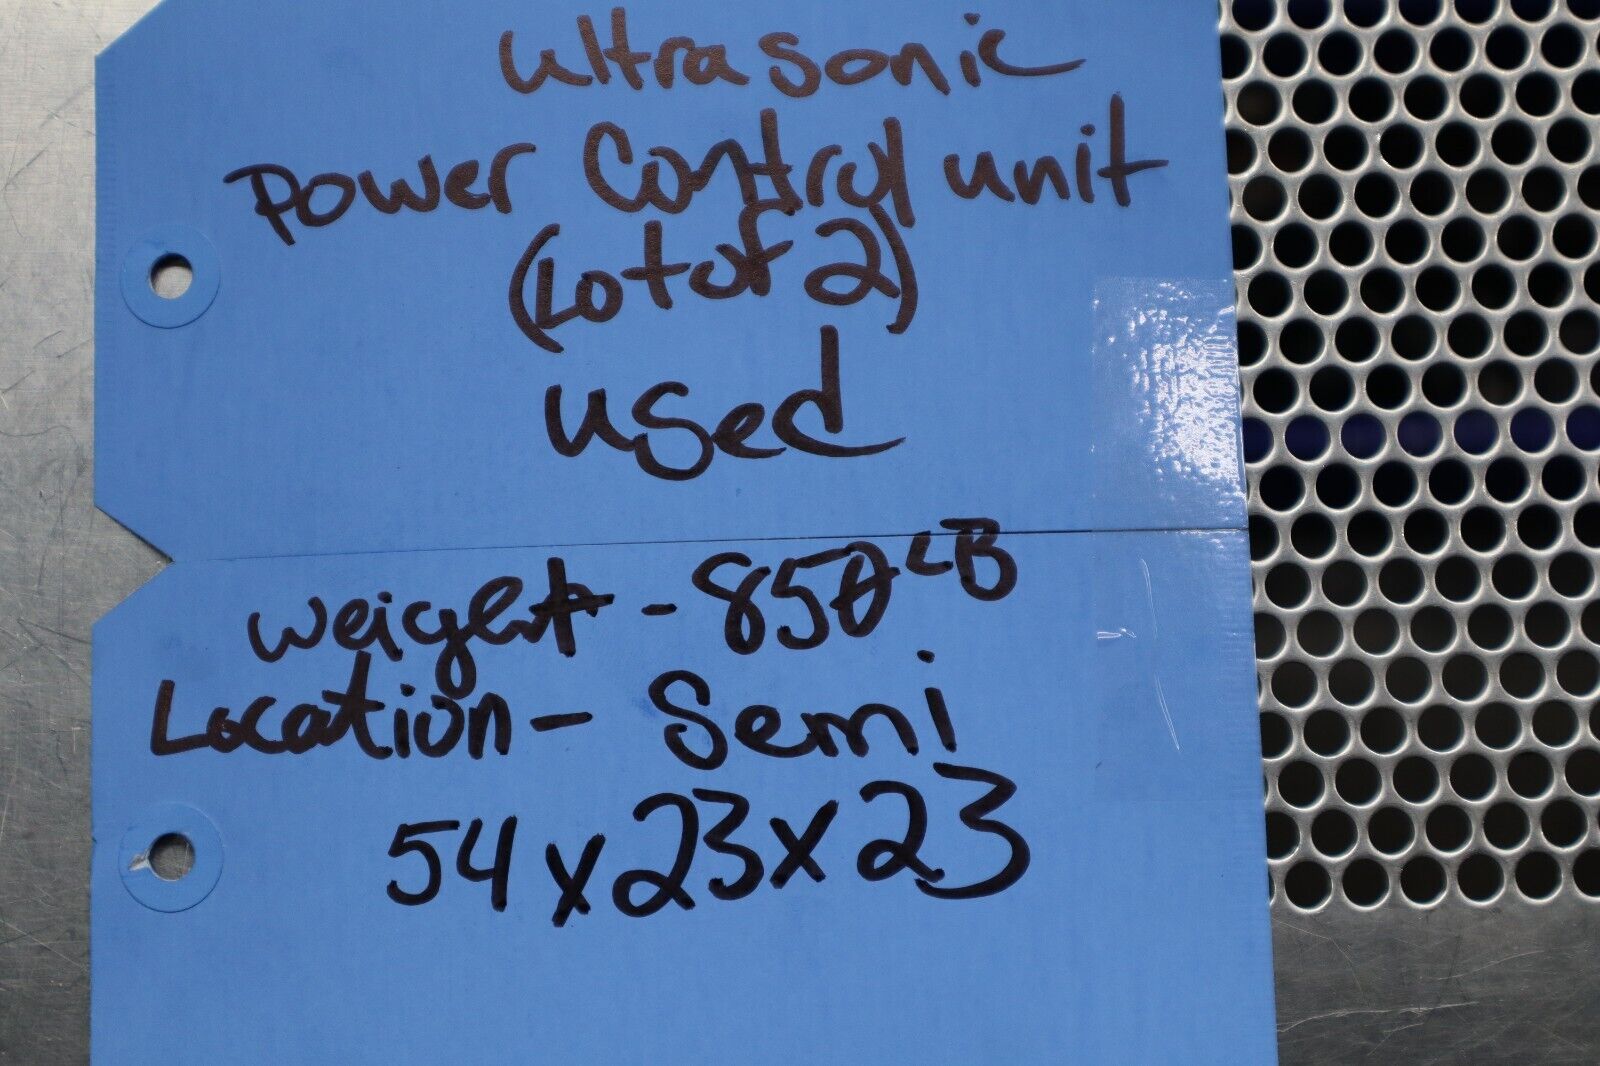 ultrasonic
Power Control unit
(Lot of 2)
used
weight - 850 LB
Location - Semi
54 x 23 x 23